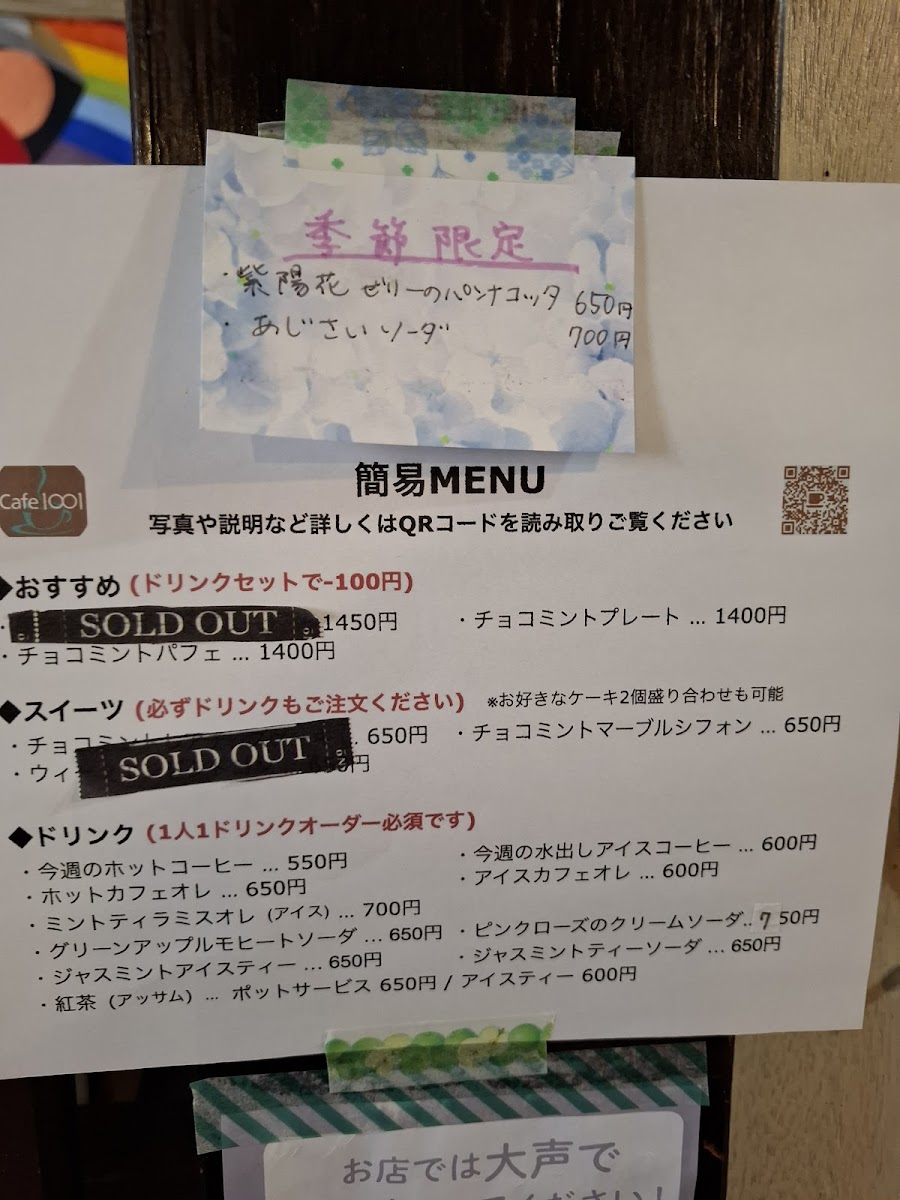 季節限定
・紫陽花ゼリーのパンナコッタ 650円
・あじさいソーダ 700円
Cafe1001
簡易MENU
写真や説明など詳しくはQRコードを読み取りご覧ください
◆おすすめ (ドリンクセットで-100円)
・SOLD OUT 1450円 ・チョコミントプレート ... 1400円
・チョコミントパフェ ... 1400円
◆スイーツ (必ずドリンクもご注文ください) ※お好きなケーキ2個盛り合わせも可能
・チョコミント ... 650円 ・チョコミントマーブルシフォン ... 650円
・ウィ SOLD OUT 円
◆ドリンク (1人1ドリンクオーダー必須です)
・今週のホットコーヒー ... 550円 ・今週の水出しアイスコーヒー ... 600円
・ホットカフェオレ ... 650円 ・アイスカフェオレ ... 600円
・ミントティラミスオレ (アイス) ... 700円 ・ピンクローズのクリームソーダ.. 750円
・グリーンアップルモヒートソーダ ... 650円 ・ジャスミントティーソーダ ... 650円
・ジャスミントアイスティー ... 650円
・紅茶 (アッサム) ... ポットサービス 650円 / アイスティー 600円
お店では大声で
ください!